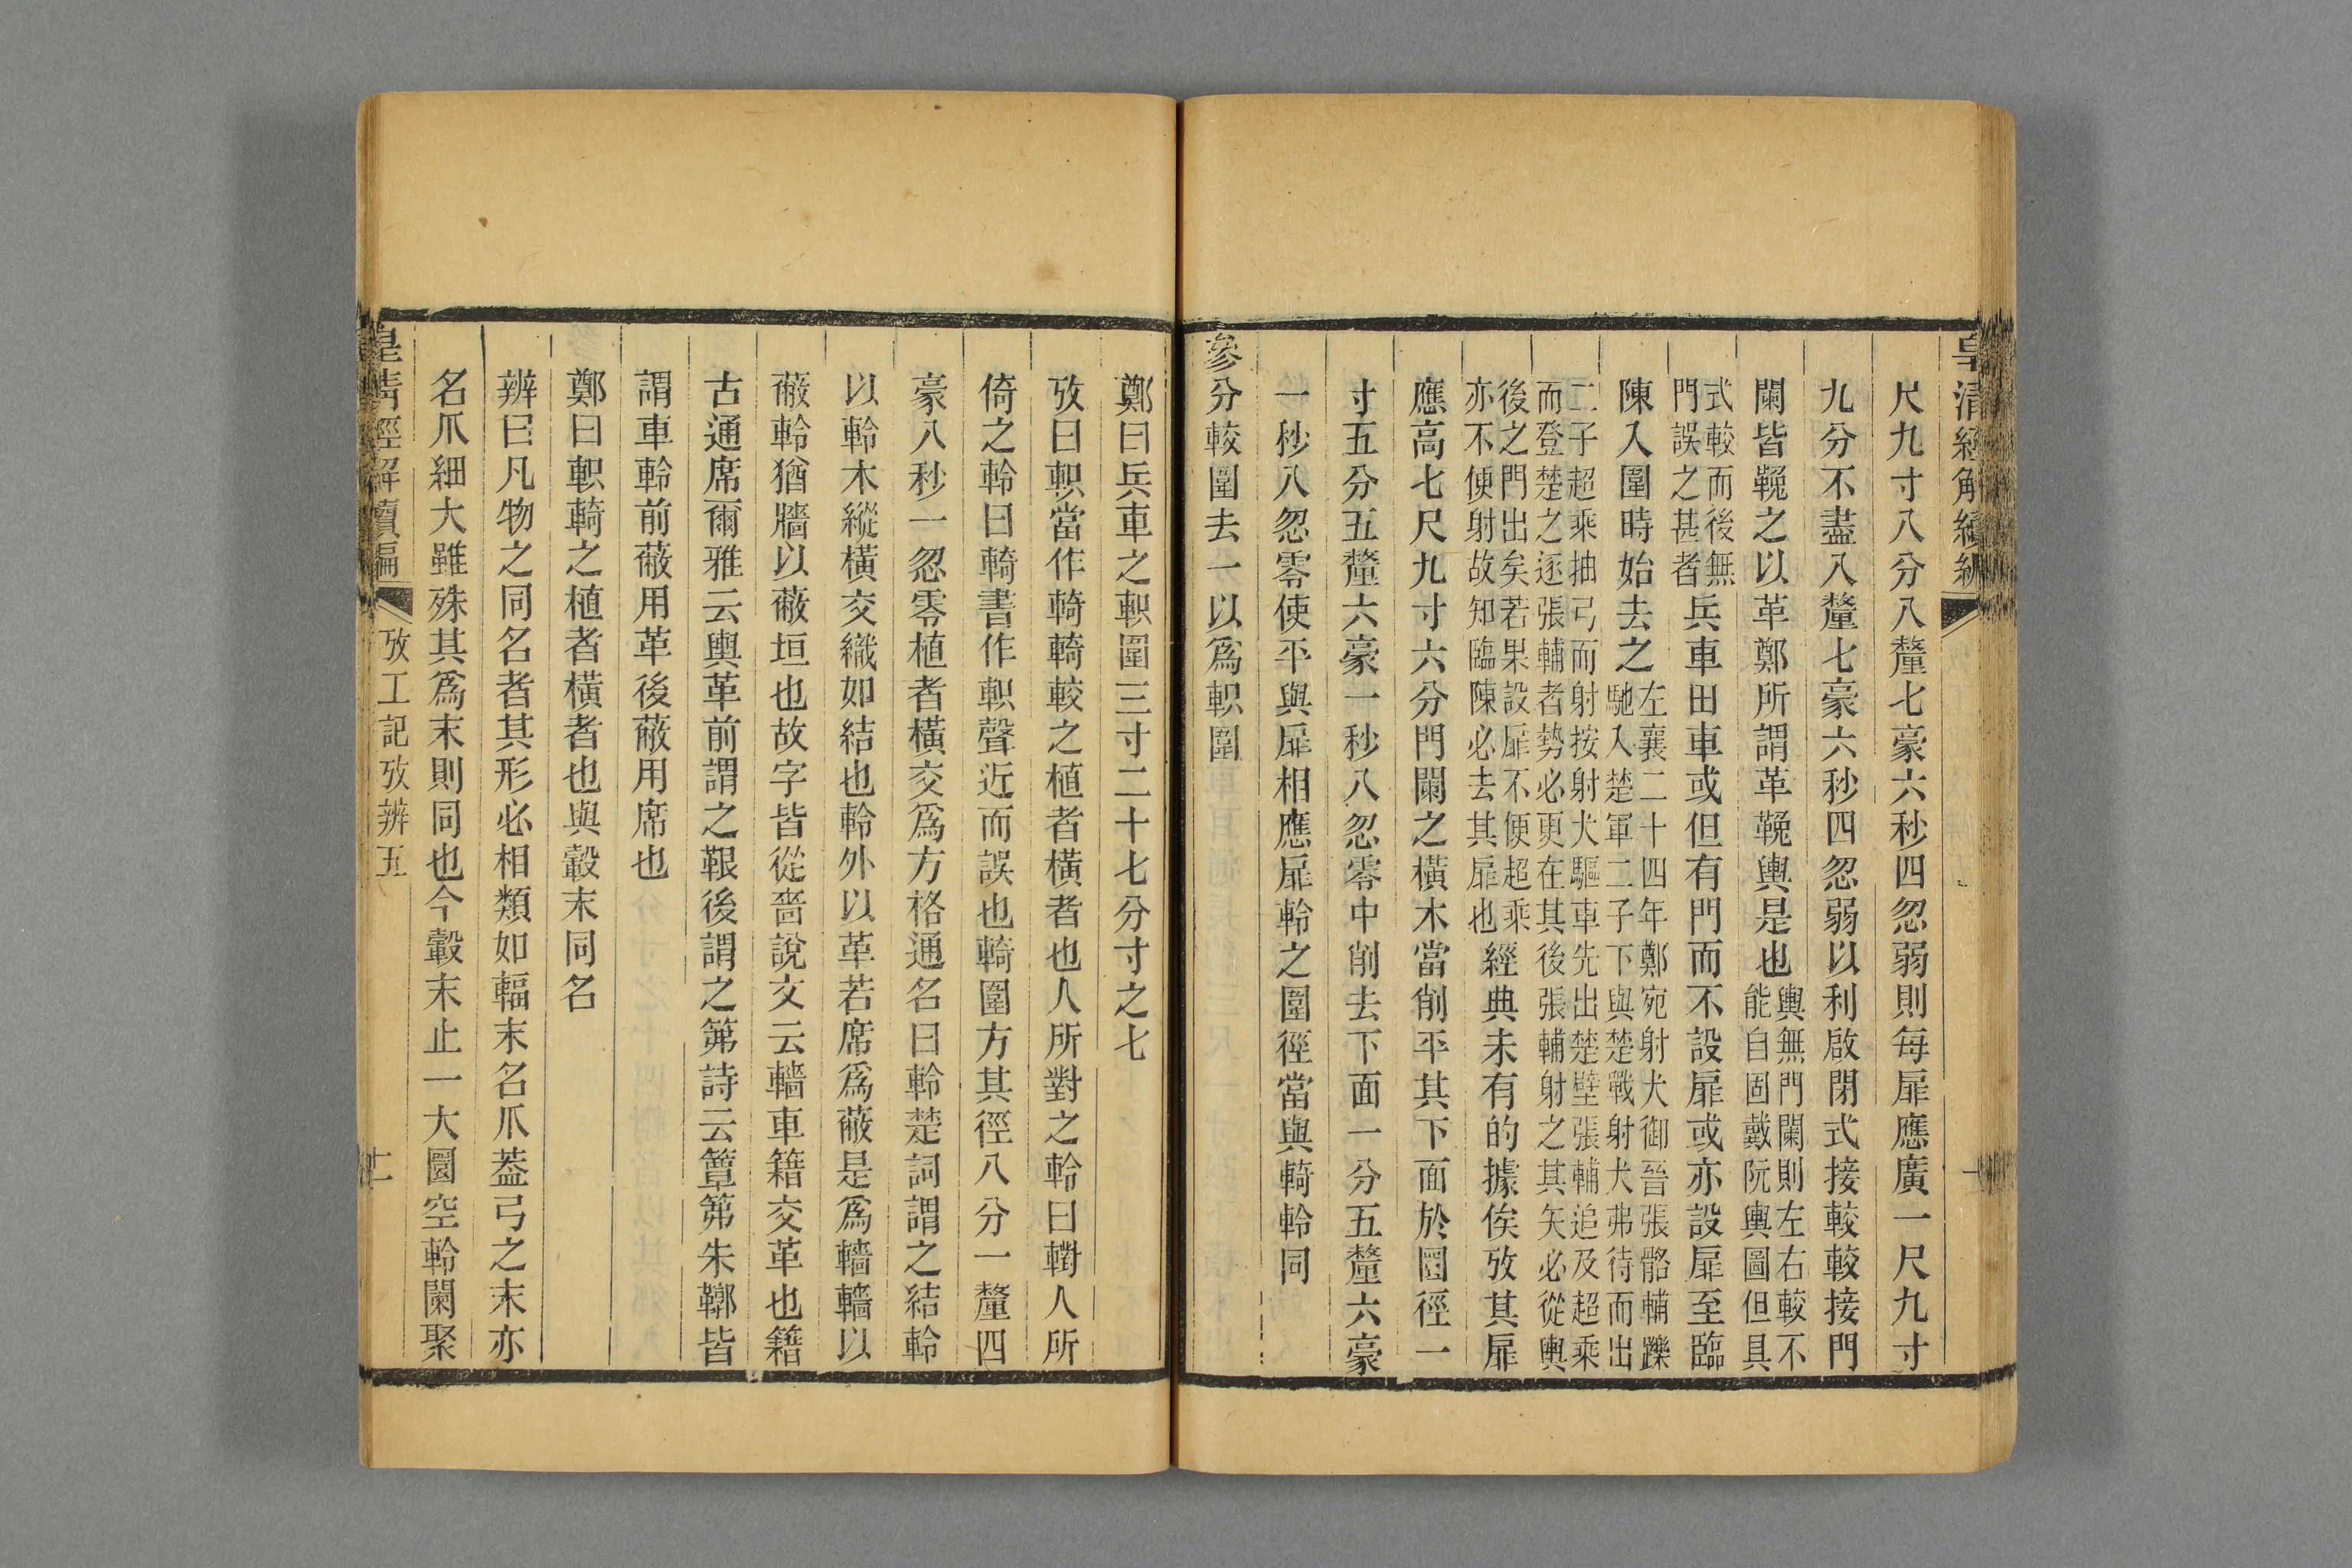 皇清經解續編
尺九寸八分八釐七豪六秒四忽弱則每扉應廣一尺九寸
九分不盡八釐七豪六秒四忽弱以利啟閉式接較較接門
闌皆鞔之以革鄭所謂革鞔輿是也輿無門闌則左右較不
能自固戴阮輿圖但具
式較而後無
門誤之甚者兵車田車或但有門而不設扉或亦設扉至臨
陳入圍時始去之左襄二十四年鄭宛射犬御晉張骼輔躒
馳入楚軍二子下與楚戰射犬弗待而出
二子超乘抽弓而射按射犬驅車先出楚壁張輔追及超乘
而登楚之逐張輔者勢必更在其後張輔射之其矢必從輿
後之門出矣若果設扉不便超乘
亦不便射故知臨陳必去其扉也經典未有的據俟攷其扉
應高七尺九寸六分門闌之橫木當削平其下面於圜徑一
寸五分五釐六豪一秒八忽零中削去下面一分五釐六豪
一秒八忽零使平與扉相應扉軨之圍徑當與輢軨同
參分較圍去一以爲軹圍
鄭曰兵車之軹圍三寸二十七分寸之七
攷曰軹當作輢輢較之植者橫者也人所對之軨曰轛人所
倚之軨曰輢書作軹聲近而誤也輢圍方其徑八分一釐四
豪八秒一忽零植者橫交爲方格通名曰軨楚詞謂之結軨
以軨木縱橫交織如結也軨外以革若席爲蔽是爲轖轖以
蔽軨猶牆以蔽垣也故字皆從嗇說文云轖車籍交革也籍
古通席爾雅云輿革前謂之鞎後謂之笰詩云簟笰朱鞹皆
謂車軨前蔽用革後蔽用席也
鄭曰軹輢之植者橫者也與轂末同名
辨曰凡物之同名者其形必相類如輻末名爪葢弓之末亦
名爪細大雖殊其爲末則同也今轂末止一大圜空軨闌聚
皇清經解續編 攷工記攷辨五 十二